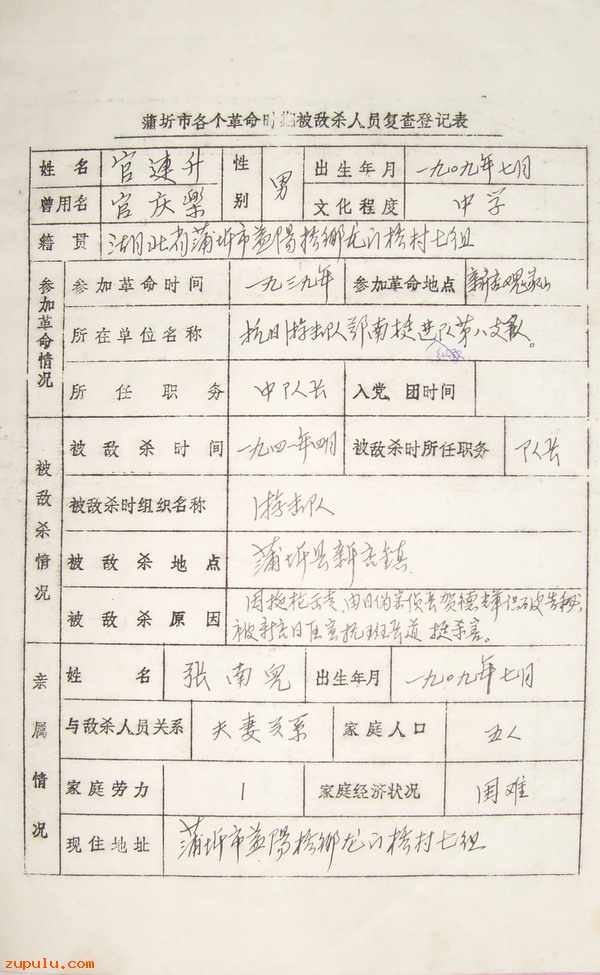 蒲圻市各个革命时期被敌杀人员复查登记表
姓名 官連升 性别 男 出生年月 一九〇九年七月
曾用名 官庆樂 文化程度 中学
籍贯 湖北省蒲圻市益陽桥鄉龙门桥村七组
参加革命情况
参加革命时间 一九三九年 参加革命地点 新店
所在单位名称 抗日游击队鄂南挺进队第八支队。
所任职务 中队长 入党、团时间
被敌杀情况
被敌杀时间 一九四一年四月 被敌杀时所任职务 队长
被敌杀时组织名称 游击队
被敌杀地点 蒲圻县新店镇
被敌杀原因 因 由日伪侦 长贺德輝识破告秘,
被新店日 杀害。
亲属情况
姓名 张南兒 出生年月 一九〇九年七月
与敌杀人员关系 夫妻关系 家庭人口 五人
家庭劳力 1 家庭经济状况 困难
现住地址 蒲圻市益陽桥鄉龙门桥村七组
zupulu.com